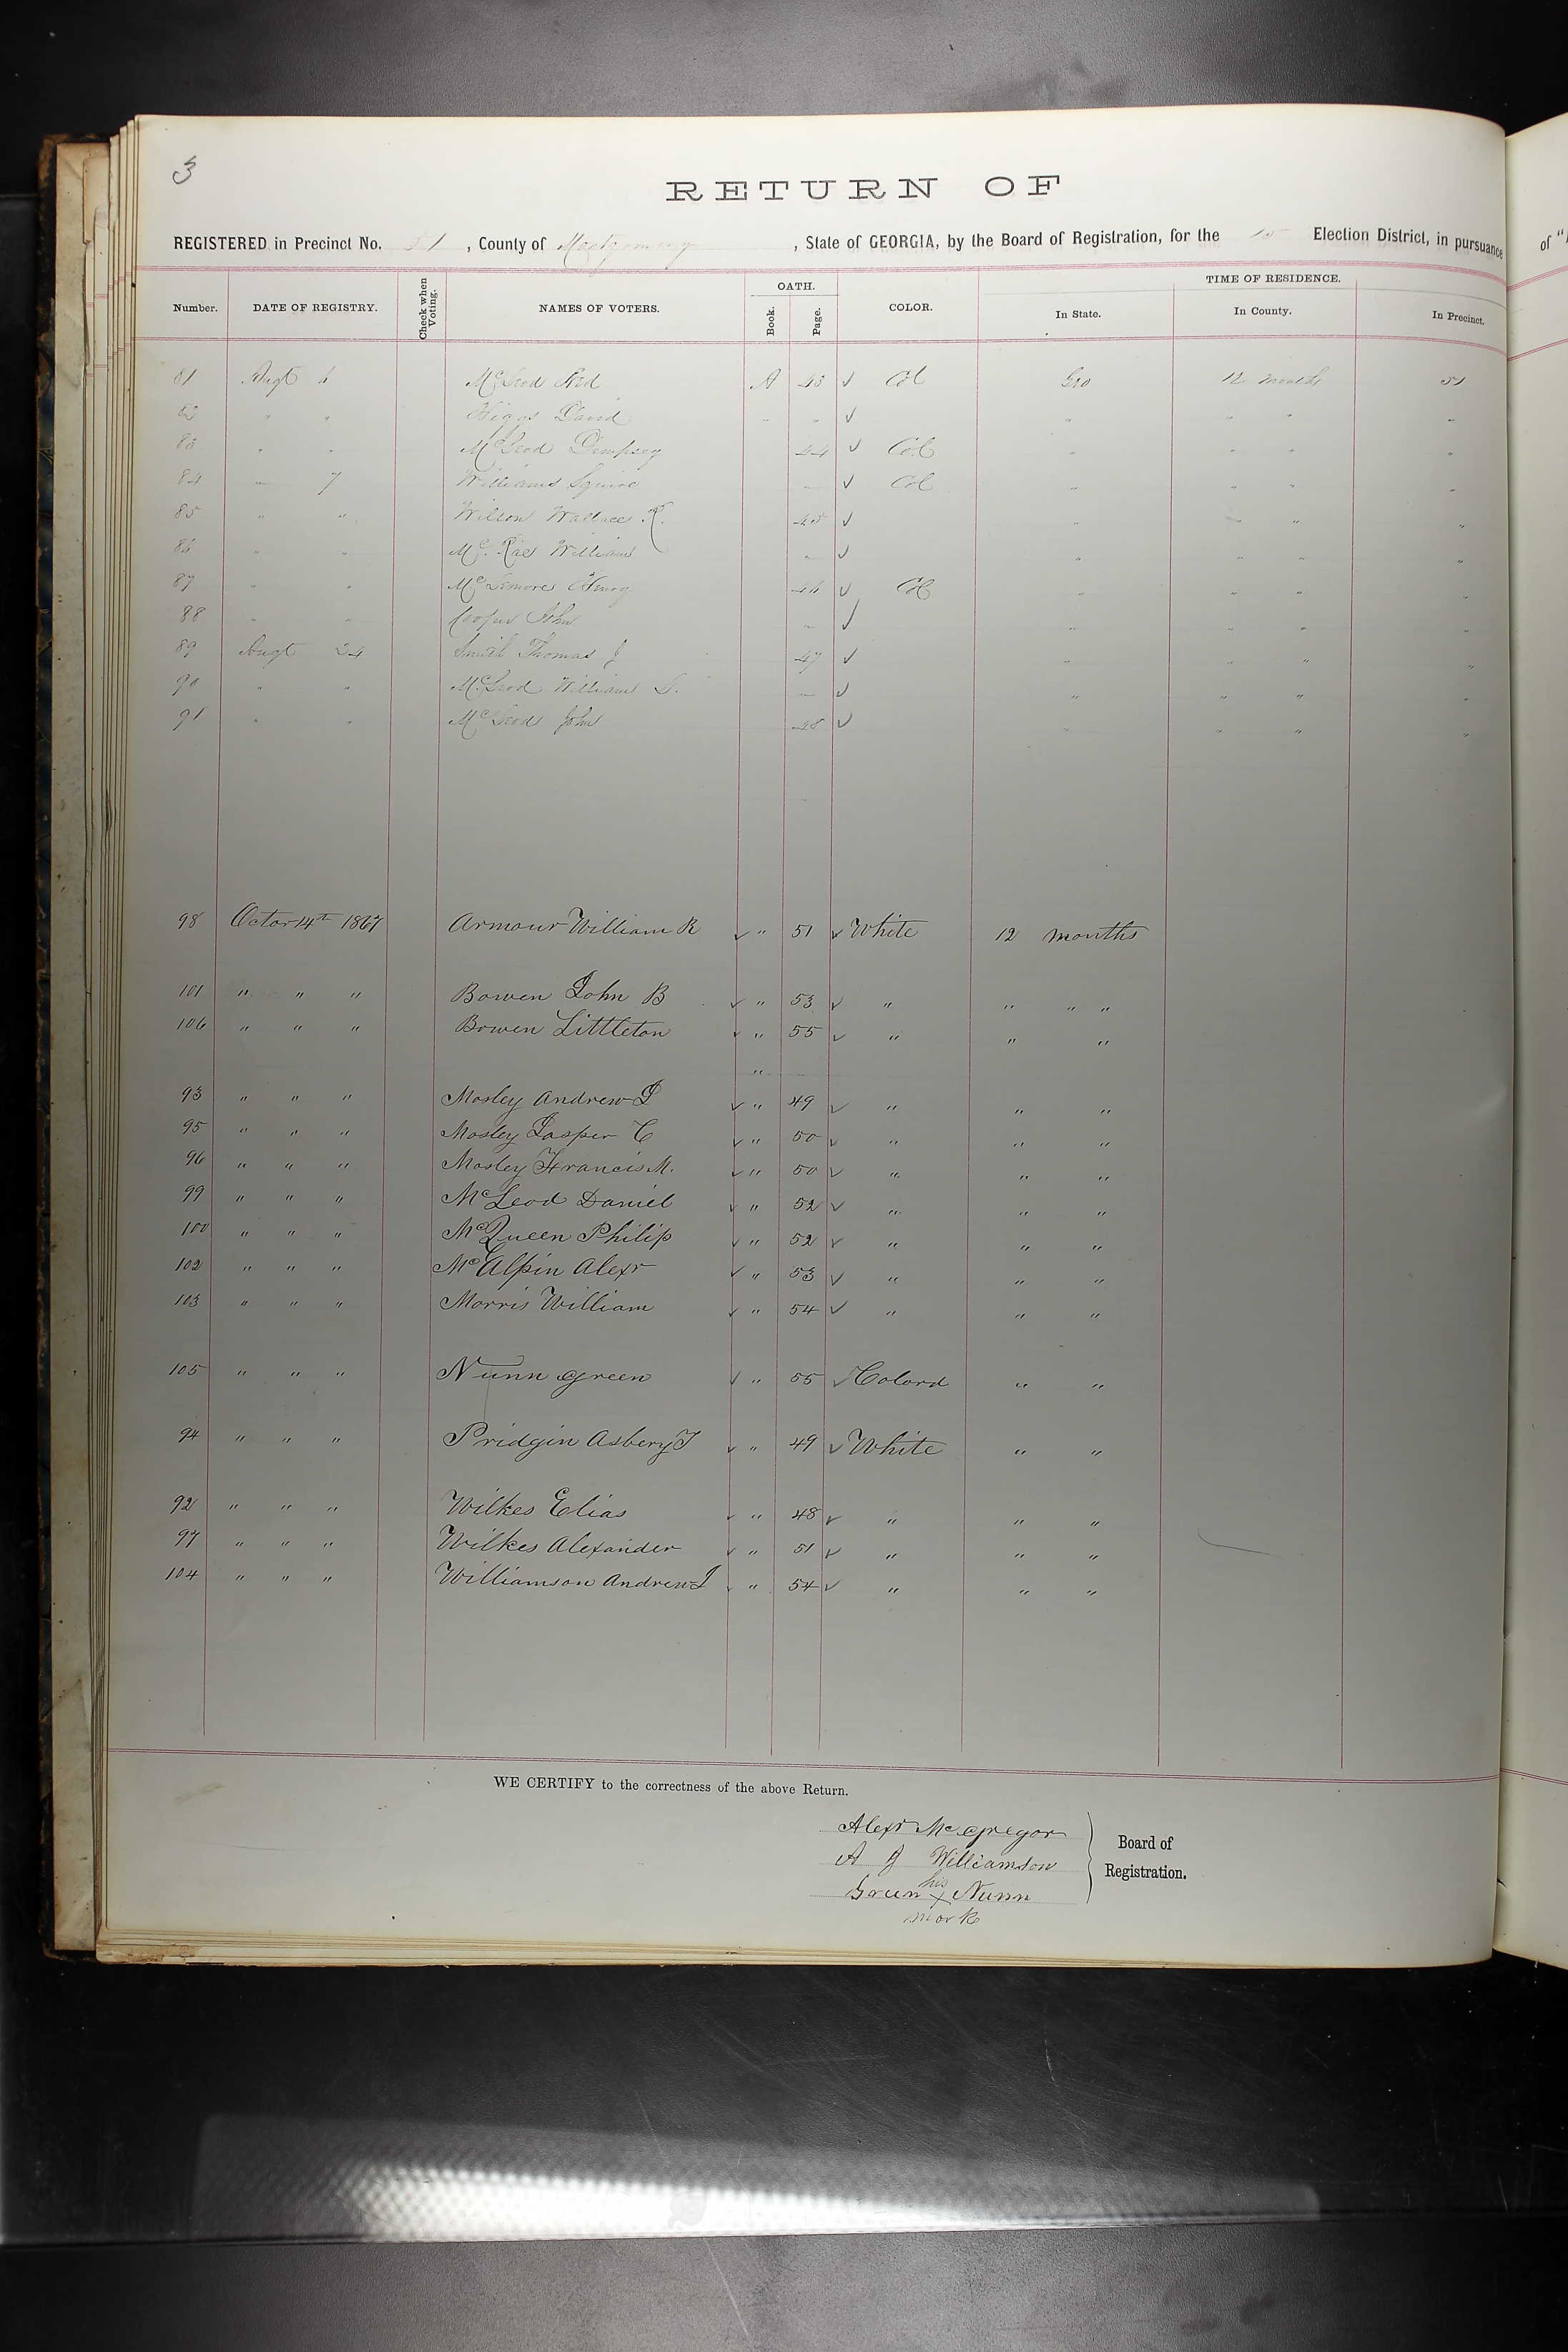 3
RETURN OF
REGISTERED in Precinct No. 51, County of Montgomery, State of GEORGIA, by the Board of Registration, for the 15 Election District, in pursuance of "
Number. DATE OF REGISTRY. Check when Voting. NAMES OF VOTERS. OATH. Book. Page. COLOR. TIME OF RESIDENCE. In State. In County. In Precinct.
81 Augt 6 McLeod A 43 ✓ Col Geo 12 months 51
82 " " Higgs David " " ✓ " " " "
83 " " McLeod Dempsey 44 ✓ Col " " " "
84 " 7 Williams Squire " ✓ Col " " " "
85 " " Wilson Wallace R. 45 ✓ " " " "
86 " " McRae William " ✓ " " " "
87 " " McLemore Henry 46 ✓ Col " " " "
88 " " Cooper John " ✓ " " " "
89 Augt 24 Thomas J 47 ✓ " " " "
90 " " McLeod William S. " ✓ " " " "
91 " " McLeod John 48 ✓ " " " "
98 Octor 14th 1867 Armour William R ✓ " 51 ✓ White 12 months
101 " " " Bowen John B ✓ " 53 ✓ " " " "
106 " " " Bowen Littleton ✓ " 55 ✓ " " "
"
93 " " " Mosley Andrew J ✓ " 49 ✓ " " "
95 " " " Mosley Jasper C ✓ " 50 ✓ " " "
96 " " " Mosley Francis M. ✓ " 50 ✓ " " "
99 " " " McLeod Daniel ✓ " 52 ✓ " " "
100 " " " McQueen Philip ✓ " 52 ✓ " " "
102 " " " McAlpin Alexr ✓ " 53 ✓ " " "
103 " " " Morris William ✓ " 54 ✓ " " "
105 " " " Nunn Green ✓ " 55 ✓ Colord " "
94 " " " Pridgin Asbery T ✓ " 49 ✓ White " "
92 " " " Wilkes Elias ✓ " 48 ✓ " " "
97 " " " Wilkes Alexander ✓ " 51 ✓ " " "
104 " " " Williamson Andrew J ✓ " 54 ✓ " " "
WE CERTIFY to the correctness of the above Return.
Alexr McGregor
A J Williamson
Green his x Nunn
mark
Board of
Registration.